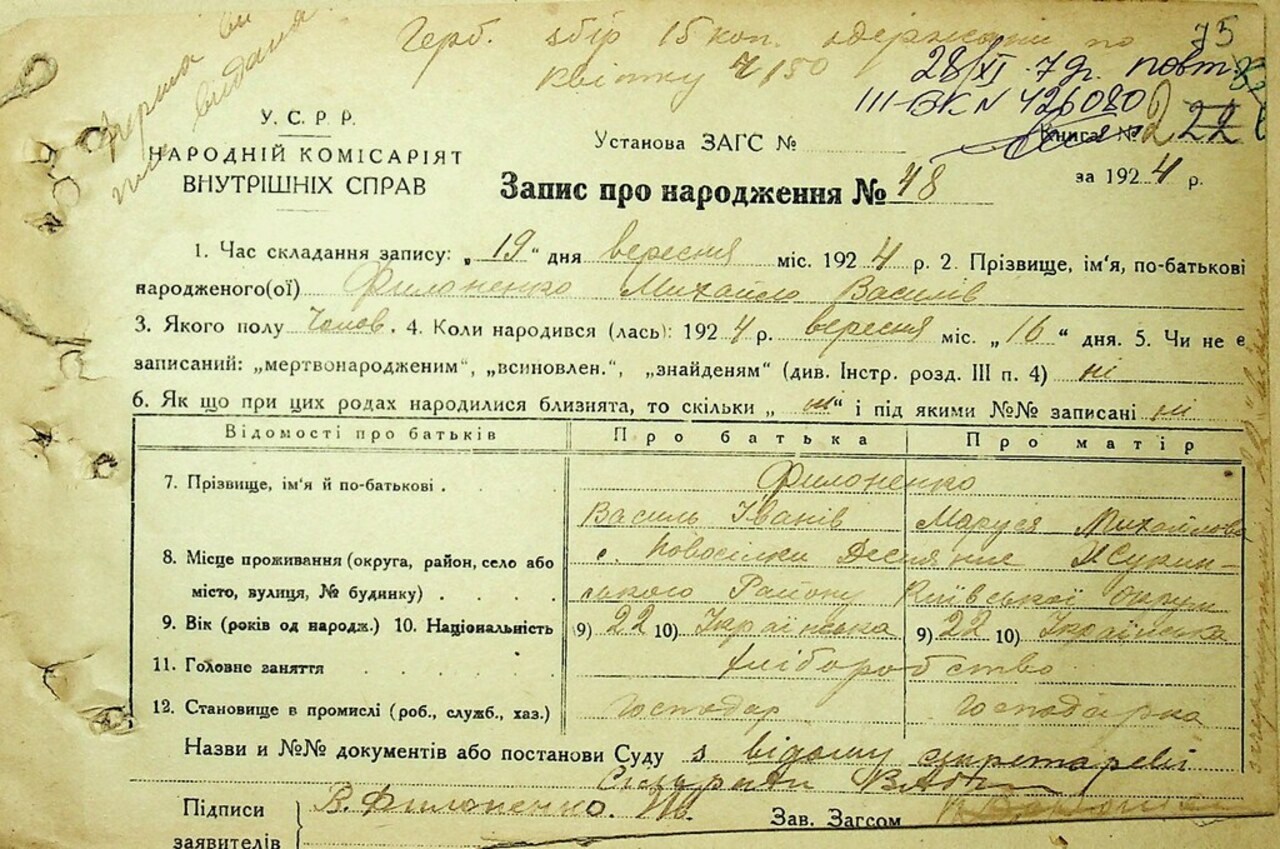 Герб. збір 15 коп. одержано по
квітку 75
28/XI 7 р. повт.
III-ЭК N 426080
У. С. Р. Р.
НАРОДНІЙ КОМІСАРІЯТ
ВНУТРІШНІХ СПРАВ
Установа ЗАГС №
Книга № 22
за 1924 р.
Запис про народження № 48
1. Час складання запису: „19“ дня вересня міс. 1924 р. 2. Прізвище, ім'я, по-батькові
народженого(ої) Филоненко Михайло Василів
3. Якого полу Чолов. 4. Коли народився (лась): 1924 р. вересня міс. „16“ дня. 5. Чи не є
записаний: „мертвонародженим“, „всиновлен.“, „знайденям“ (див. Інстр. розд. III п. 4) ні
6. Як що при цих родах народилися близнята, то скільки „ “ і під якими №№ записані ні
Відомості про батьків Про батька Про матір
7. Прізвище, ім'я й по-батькові . Филоненко
Василь Іванів Маруся Михайлова
8. Місце проживання (округа, район, село або с. Новосілки
місто, вулиця, № будинку) . . . . ського Району Київської округи
9. Вік (років од народж.) 10. Національність 9) 22 10) Українська 9) 22 10) Українська
11. Головне заняття . . . . . хліборобство
12. Становище в промислі (роб., служб., хаз.) Господар Господарка
Назви и №№ документів або постанови Суду з відому
Сільради
Підписи В. Филоненко.
заявителів
Зав. Загсом